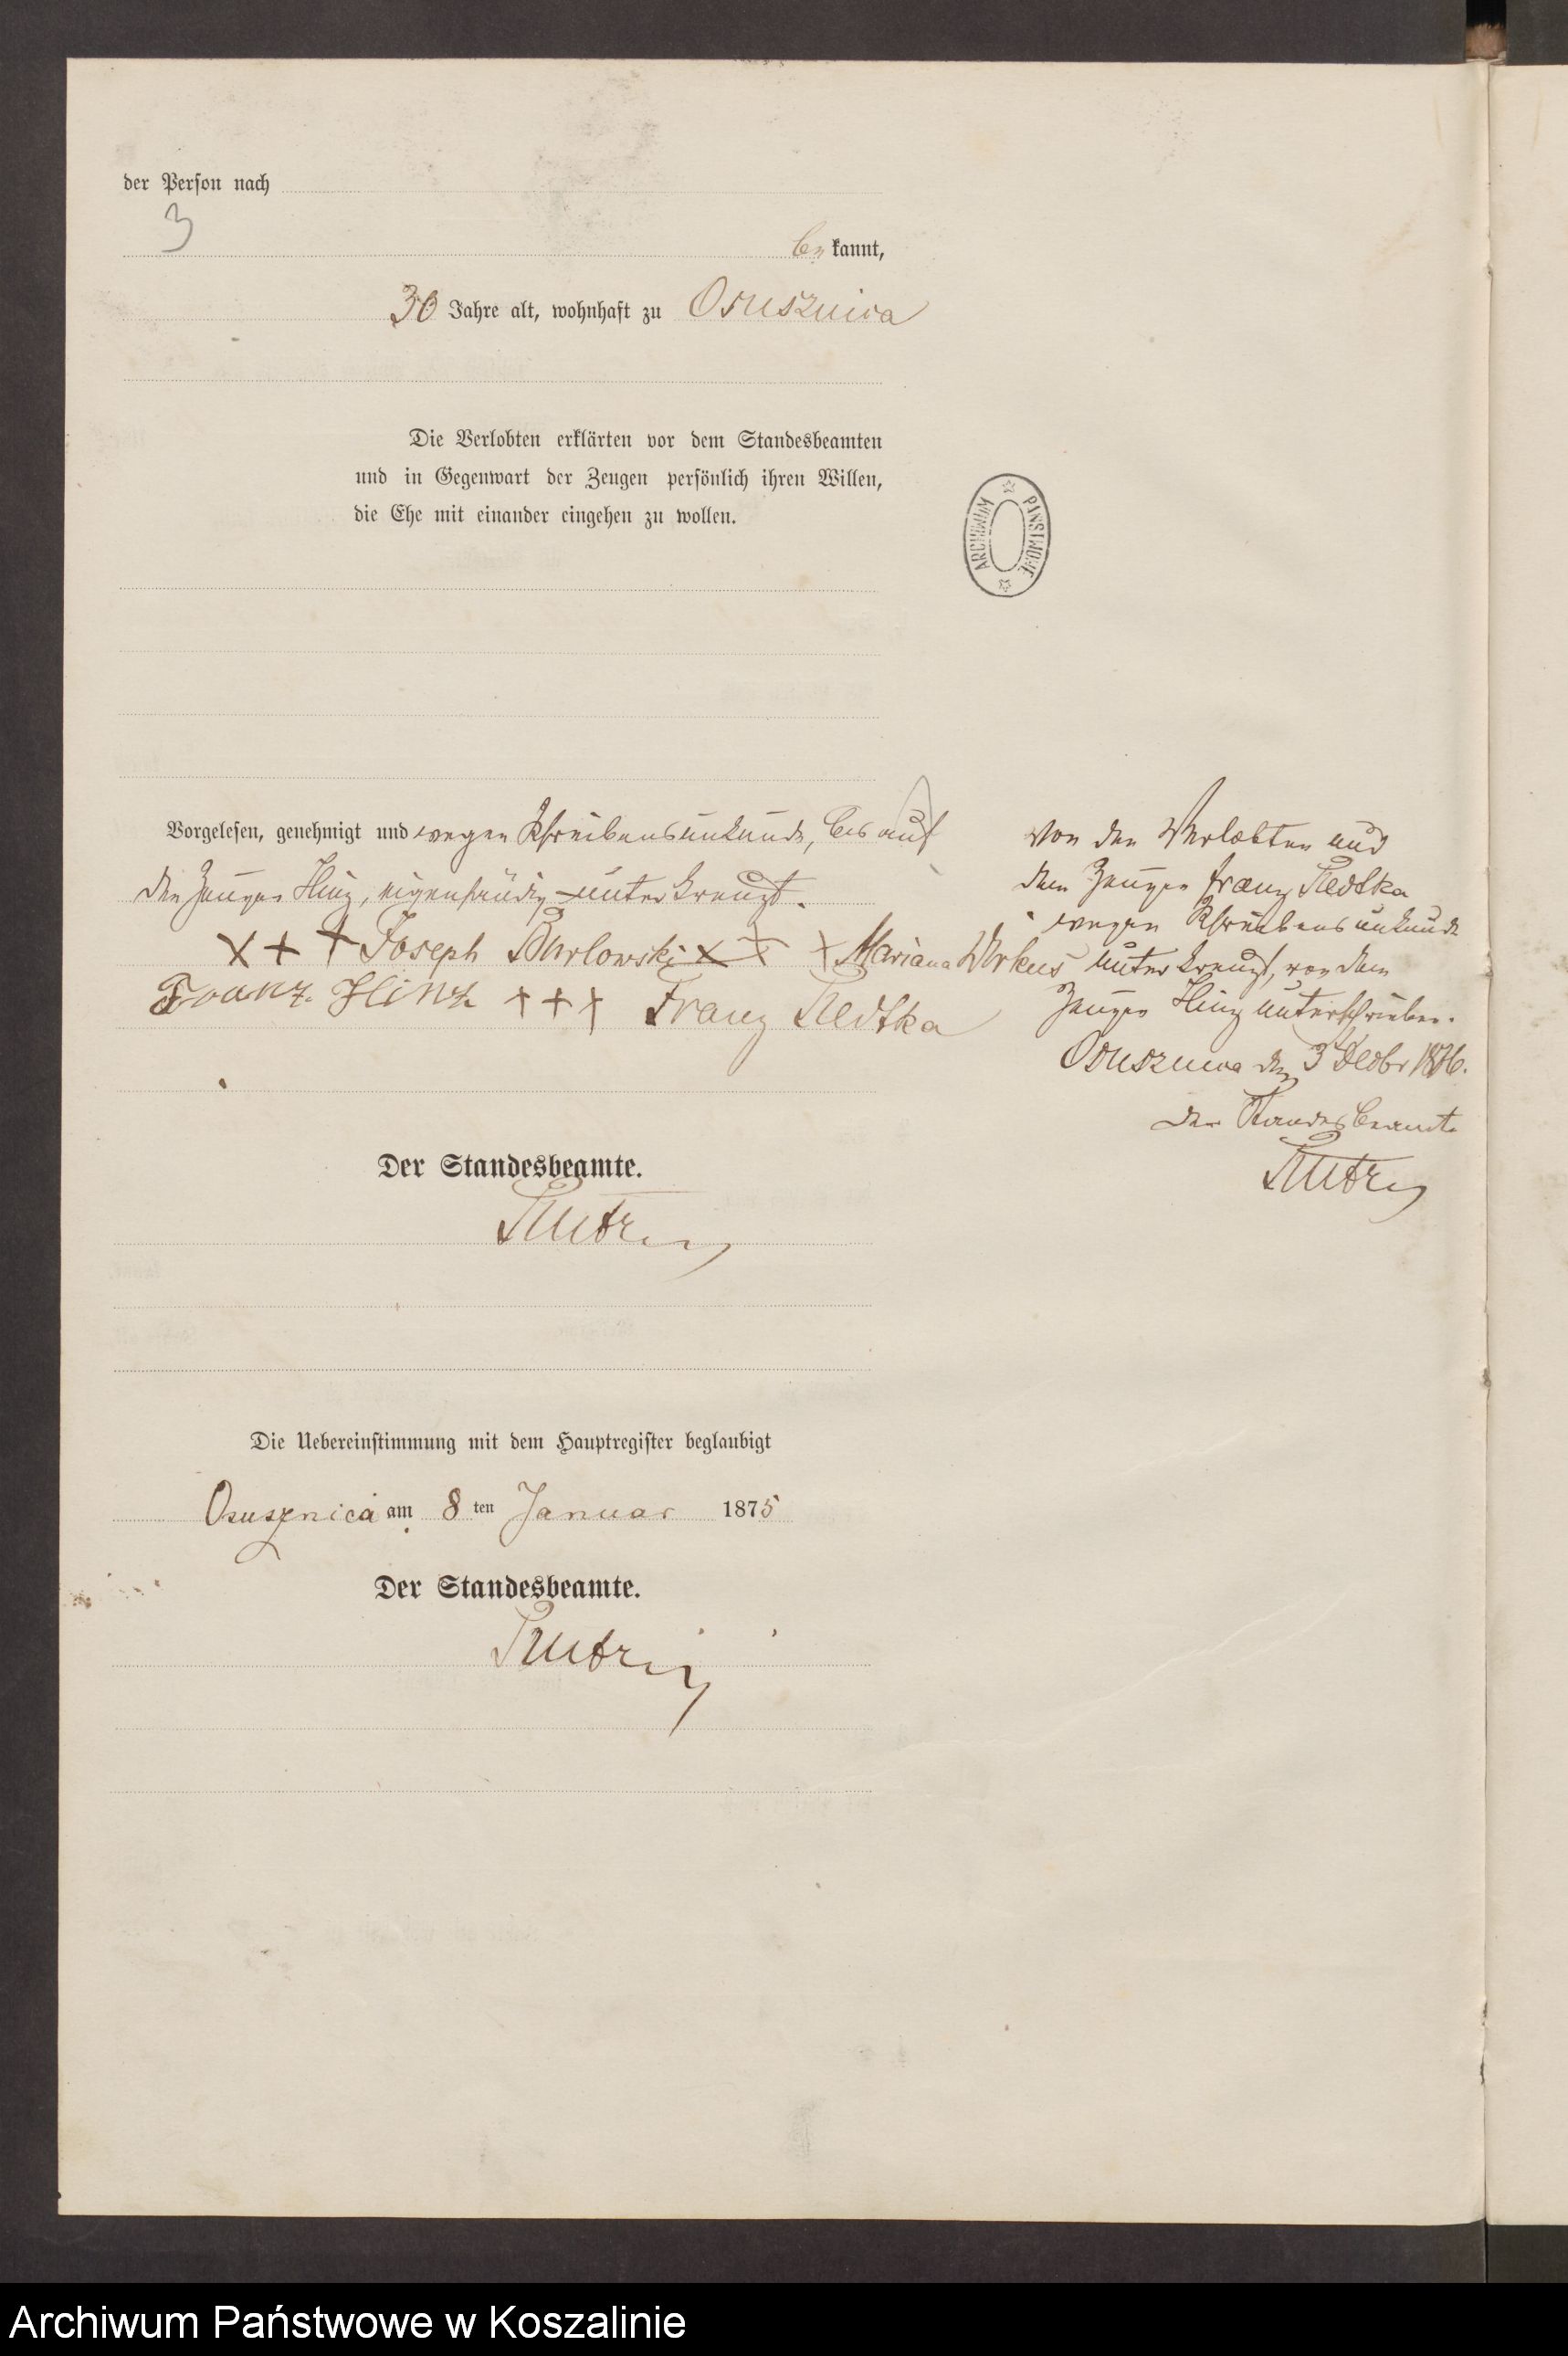 der Person nach
3
be kannt,
30 Jahre alt, wohnhaft zu Osusznica
Die Verlobten erklärten vor dem Standesbeamten
und in Gegenwart der Zeugen persönlich ihren Willen,
die Ehe mit einander eingehen zu wollen.
ARCHIWUM PAŃSTWOWE
Vorgelesen, genehmigt und wegen Schreibensunkunde, bis auf
den Zeugen Hinz, eigenhändig unterkreuzt.
X + + Joseph Burlowski X + + Mariana Werkus
Franz Hinz + + + Franz
Der Standesbeamte.
Von den Verlobten und
dem Zeugen Franz
wegen Schreibensunkunde
unterkreuzt, von dem
Zeugen Hinz unterschrieben.
Osusznica den 3 Dcbr 1876.
Der Standesbeamte
Die Uebereinstimmung mit dem Hauptregister beglaubigt
Osusznica am 8 ten Januar 1875
Der Standesbeamte.
Archiwum Państwowe w Koszalinie